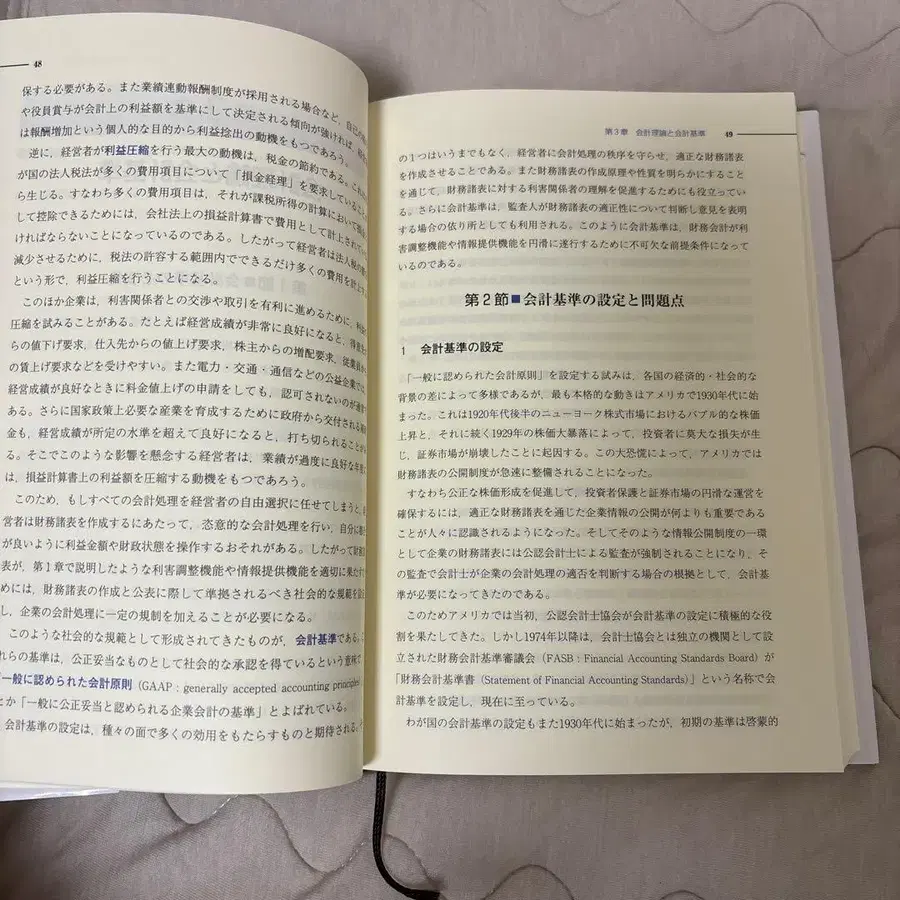 48
保する必要がある。また業績連動報酬制度が採用される場合など、自己の
や役員賞与が会計上の利益額を基準にして決定される傾向が強ければ、
は報酬増加という個人的な目的から利益捻出の動機をもつであろう。
逆に、経営者が利益圧縮を行う最大の動機は、税金の節約である。
が国の法人税法が多くの費用項目について「損金経理」を要求している
ら生じる。すなわち多くの費用項目は、それが課税所得の計算において
して控除できるためには、会社法上の損益計算書で費用として計上されてい
ければならないことになっているのである。したがって経営者は法人税の
減少させるために、税法の許容する範囲内でできるだけ多くの費用を計上
という形で、利益圧縮を行うことになる。
このほか企業は、利害関係者との交渉や取引を有利に進めるために、利益
圧縮を試みることがある。たとえば経営成績が非常に良好になると、得意先
らの値下げ要求、仕入先からの値上げ要求、株主からの増配要求、従業員
の賃上げ要求などを受けやすい。また電力・交通・通信などの公益企業で
経営成績が良好なときに料金値上げの申請をしても、認可されないのが通
ある。さらに国家政策上必要な産業を育成するために政府から交付される
金も、経営成績が所定の水準を超えて良好になると、打ち切られることが
る。そこでこのような影響を懸念する経営者は、業績が過度に良好な年度
は、損益計算書上の利益額を圧縮する動機をもつであろう。
このため、もしすべての会計処理を経営者の自由選択に任せてしまうと、
営者は財務諸表を作成するにあたって、恣意的な会計処理を行い、自分に
が良いように利益金額や財政状態を操作するおそれがある。したがって財務
表が、第1章で説明したような利害調整機能や情報提供機能を適切に果たす
めには、財務諸表の作成と公表に際して準拠されるべき社会的な規範を
し、企業の会計処理に一定の規制を加えることが必要になる。
このような社会的な規範として形成されてきたものが、会計基準である。
れらの基準は、公正妥当なものとして社会的な承認を得ているという意味で
「一般に認められた会計原則（GAAP：generally accepted accounting principles）
とか「一般に公正妥当と認められる企業会計の基準」とよばれている。
会計基準の設定は、種々の面で多くの効用をもたらすものと期待される。
第3章　会計理論と会計基準　49
の1つはいうまでもなく、経営者に会計処理の秩序を守らせ、適正な財務諸表
を作成させることである。また財務諸表の作成原理や性質を明らかにすること
を通じて、財務諸表に対する利害関係者の理解を促進するためにも役立ってい
る。さらに会計基準は、監査人が財務諸表の適正性について判断し意見を表明
する場合の依り所としても利用される。このように会計基準は、財務会計が利
害調整機能や情報提供機能を円滑に遂行するために不可欠な前提条件になって
いるのである。
第2節■会計基準の設定と問題点
1　会計基準の設定
「一般に認められた会計原則」を設定する試みは、各国の経済的・社会的な
背景の差によって多様であるが、最も本格的な動きはアメリカで1930年代に始
まった。これは1920年代後半のニューヨーク株式市場におけるバブル的な株価
上昇と、それに続く1929年の株価大暴落によって、投資者に莫大な損失が生
じ、証券市場が崩壊したことに起因する。この大恐慌によって、アメリカでは
財務諸表の公開制度が急速に整備されることになった。
すなわち公正な株価形成を促進して、投資者保護と証券市場の円滑な運営を
確保するには、適正な財務諸表を通じた企業情報の公開が何よりも重要である
ことが人々に認識されるようになった。そしてそのような情報公開制度の一環
として企業の財務諸表には公認会計士による監査が強制されることになり、そ
の監査で会計士が企業の会計処理の適否を判断する場合の根拠として、会計基
準が必要になってきたのである。
このためアメリカでは当初、公認会計士協会が会計基準の設定に積極的な役
割を果たしてきた。しかし1974年以降は、会計士協会とは独立の機関として設
立された財務会計基準審議会（FASB：Financial Accounting Standards Board）が
「財務会計基準書（Statement of Financial Accounting Standards）」という名称で会
計基準を設定し、現在に至っている。
わが国の会計基準の設定もまた1930年代に始まったが、初期の基準は啓蒙的